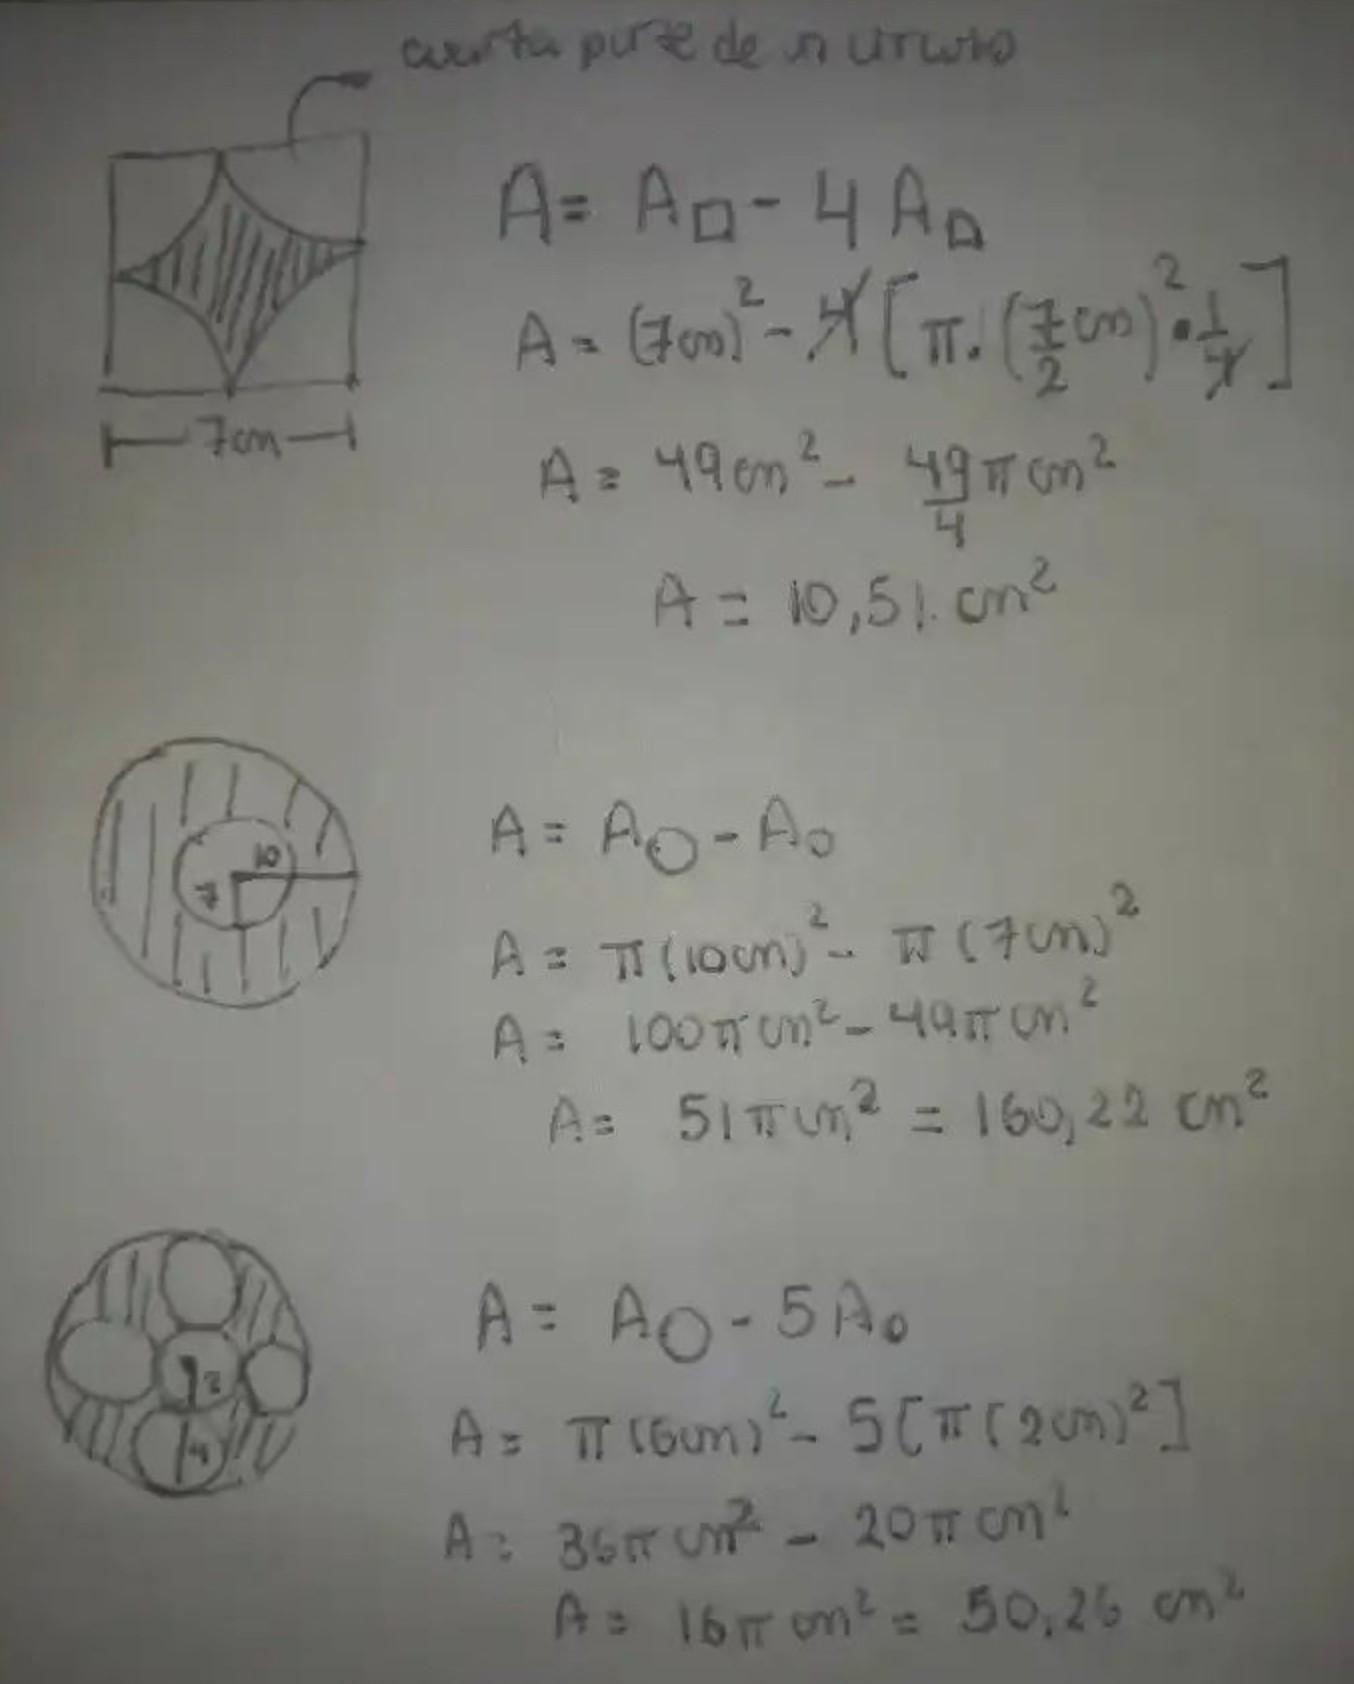 cuarta parte de un círculo
A = A□ - 4 A◺
A = (7cm)² - 4 [π. (7/2 cm)² • 1/4]
7cm
A = 49cm² - 49/4 π cm²
A = 10,51 cm²
A = A○ - A○
10
7
A = π(10cm)² - π(7cm)²
A = 100π cm² - 49π cm²
A = 51π cm² = 160,22 cm²
A = A○ - 5A○
2
4
A = π(6cm)² - 5[π(2cm)²]
A = 36π cm² - 20π cm²
A = 16π cm² = 50,26 cm²